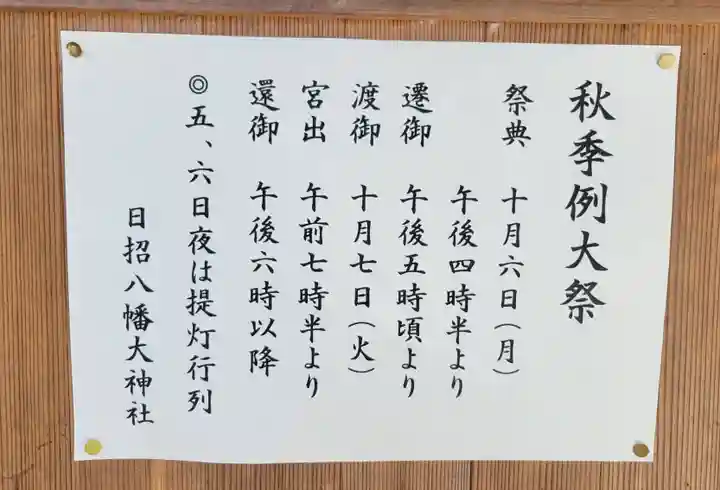 秋季例大祭
祭典 十月六日(月)
午後四時半より
遷御 午後五時頃より
渡御 十月七日(火)
宮出 午前七時半より
還御 午後六時以降
◎五、六日夜は提灯行列
日招八幡大神社